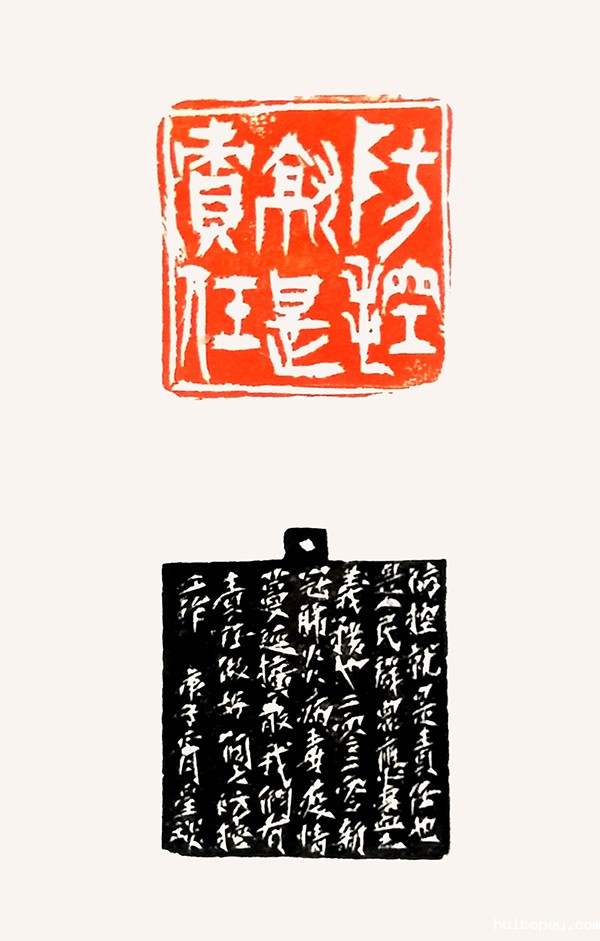 防控
就是
責任
防控就是責任也
是人民群眾應盡之
義務也二零二零新
冠肺炎病毒疫情
蔓延擴散我們有
責任做好個人防控
工作 庚子
huibopay.com